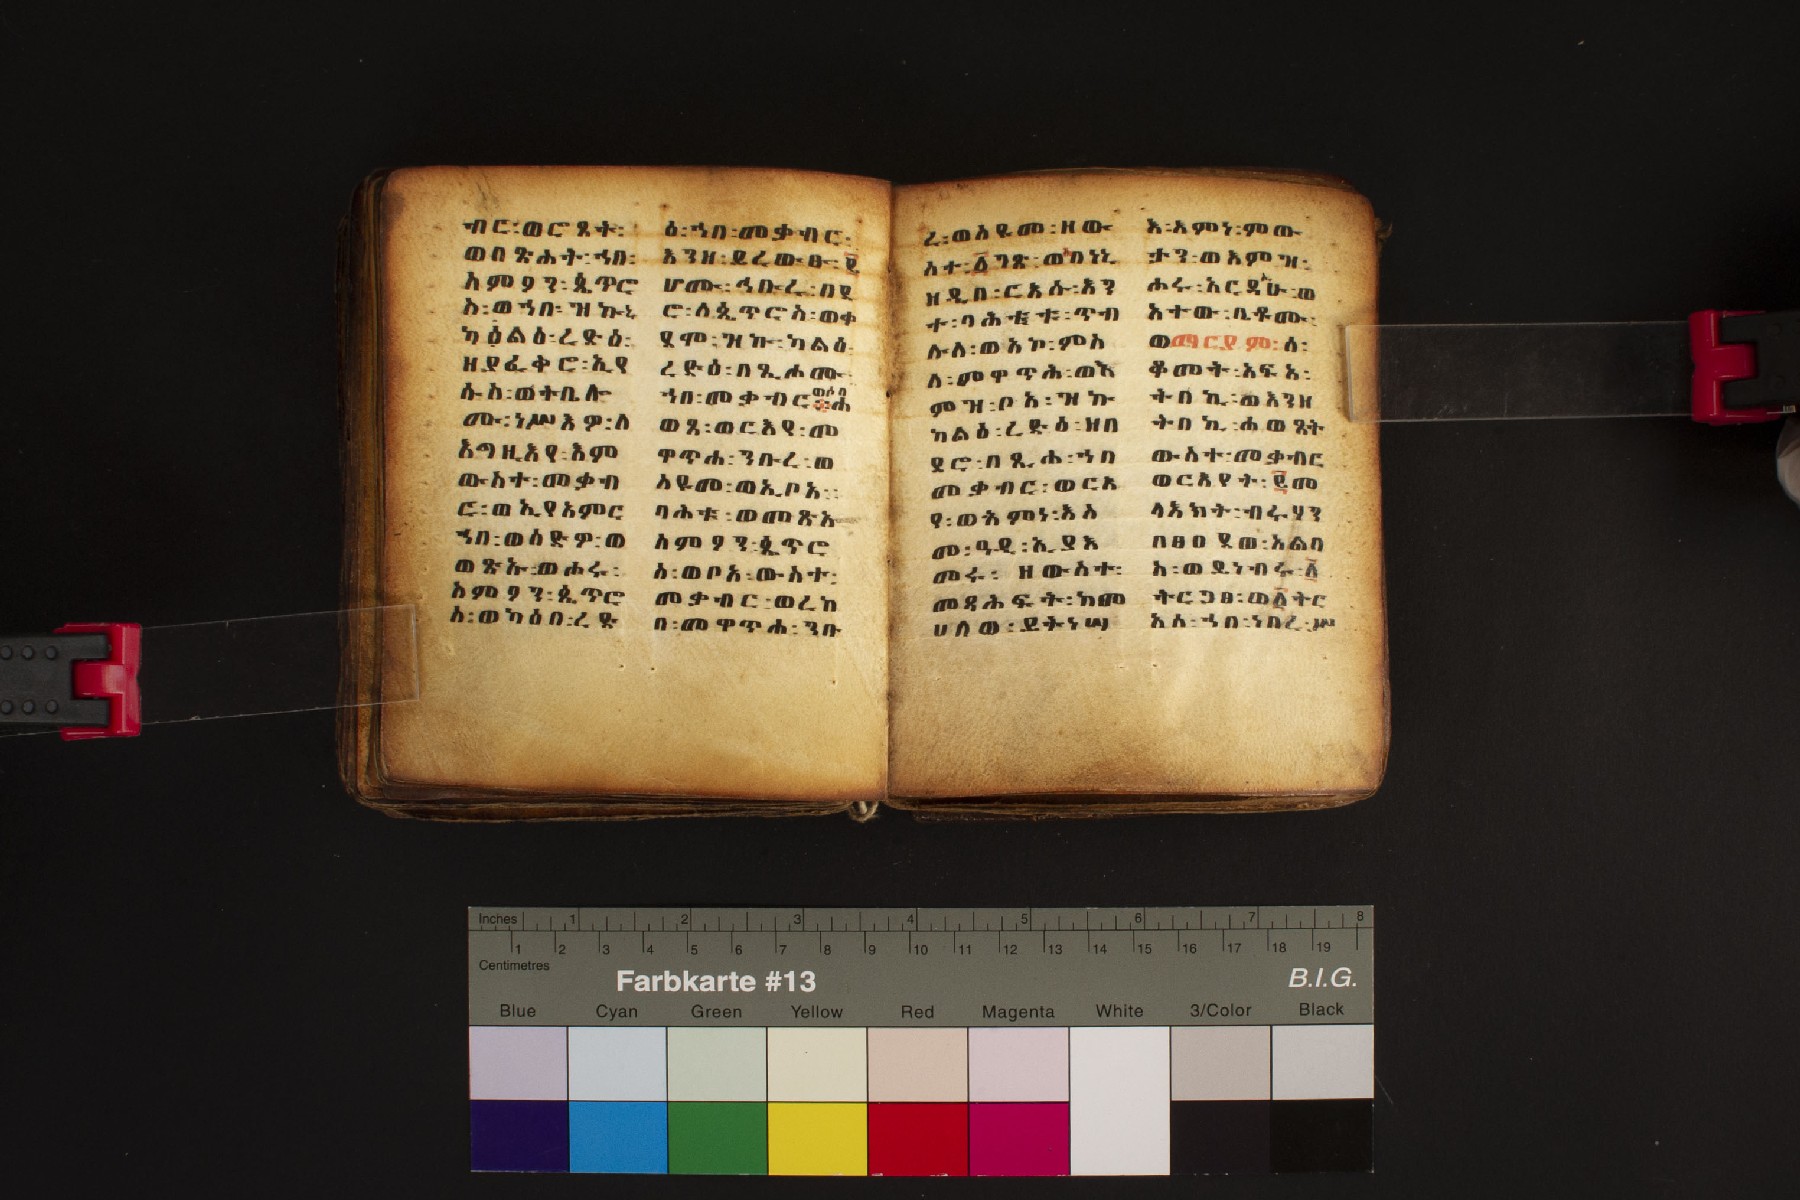 ብር፡ወሮጸት፡
ወበጽሐት፡ኀበ፡
ስምዖን፡ጴጥሮ
ስ፡ወኀበ፡ዝኩኒ
ካዕልዕ፡ረድዕ፡
ዘያፈቅሮ፡ኢየ
ሱስ፡ወትቤሎ
ሙ፡ነሥእዎ፡ለ
እግዚእየ፡እም
ውስተ፡መቃብ
ር፡ወኢየአምር
ኀበ፡ወሰድዎ፡ወ
ወጽኡ፡ወሐሩ፡
ስምዖን፡ጴጥሮ
ስ፡ወካዕበ፡ረድ
ዕ፡ኀበ፡መቃብር፡
እንዘ፡ይረውፁ፡፪
ሆሙ፡ኅቡረ፡በደ
ሮ፡ለጴጥሮስ፡ወቀ
ደሞ፡ዝኩ፡ካልዕ፡
ረድዕ፡በጺሐሙ፡
ኀበ፡መቃብር፡ወሶበ፡ሐ
ወጸ፡ወርእየ፡መ
ዋጥሐ፡ንቡረ፡ወ
ስዩመ፡ወኢቦአ፡፡
ባሕቱ፡ወመጽአ
ስምዖን፡ጴጥሮ
ስ፡ወቦአ፡ውስተ፡
መቃብር፡ወረከ
በ፡መዋጥሐ፡ንቡ
ረ፡ወስዩመ፡ዘው
ስተ፡፩ገጽ፡ወሰበነኒ
ዘዲበ፡ርእሱ፡እን
ተ፡ባሕቲቱ፡ጥብ
ሉለ፡ወአኮ፡ምስ
ለ፡መዋጥሕ፡ወእ
ምዝ፡ቦአ፡ዝኩ
ካልዕ፡ረድዕ፡ዘበ
ደሮ፡በጺሐ፡ኀበ
መቃብር፡ወርእ
የ፡ወአምነ፡እስ
መ፡ዓዲ፡ኢያእ
መሩ፡ዘውስተ፡
መጻሕፍት፡ከመ
ሀለወ፡ይትነሣ
እ፡እምነ፡ምው
ታን፡ወእምዝ፡
ሐሩ፡አርዳኢሁ፡ወ
አተው፡ቤቶሙ፡
ወማርያም፡ሰ፡
ቆመት፡አፍአ፡
ትበኪ፡ወእንዘ
ትበኪ፡ሐወጸት
ውስተ፡መቃብር
ወርእየት፡፪መ
ላእክት፡ብሩሃን
በፀዐደወ፡አልባ
ስ፡ወይነብሩ፡፩
ትርጋፀ፡ወ፩ትር
አሰ፡ኀበ፡ነበረ፡ሥ
Inches 1 2 3 4 5 6 7 8
1 2 3 4 5 6 7 8 9 10 11 12 13 14 15 16 17 18 19
Centimetres
Farbkarte #13 B.I.G.
Blue Cyan Green Yellow Red Magenta White 3/Color Black